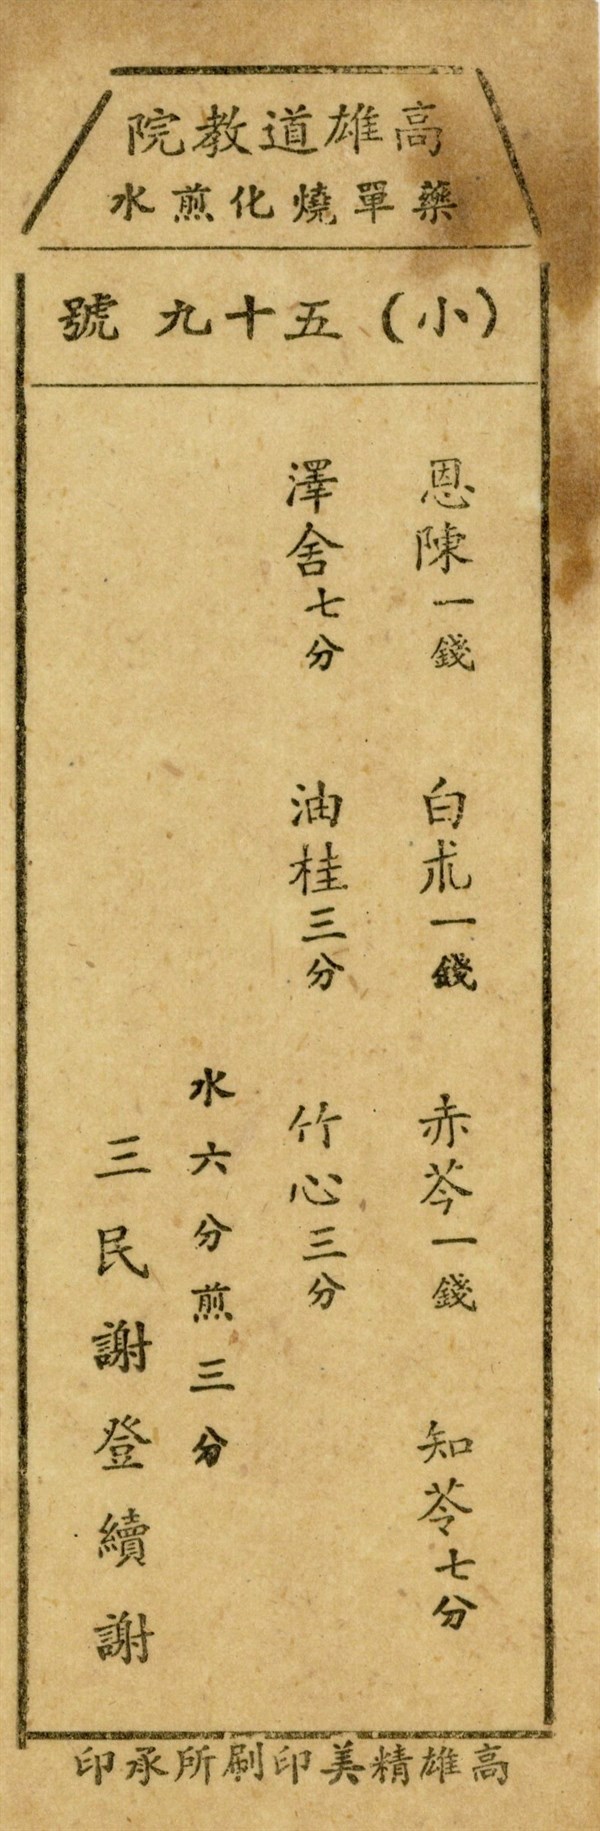 高雄道教院
藥單燒化煎水
(小)五十九號
恩陳一錢 白朮一錢 赤芩一錢 知苓七分
澤舍七分 油桂三分 竹心三分
水六分煎三分
三民謝登續謝
高雄精美印刷所承印